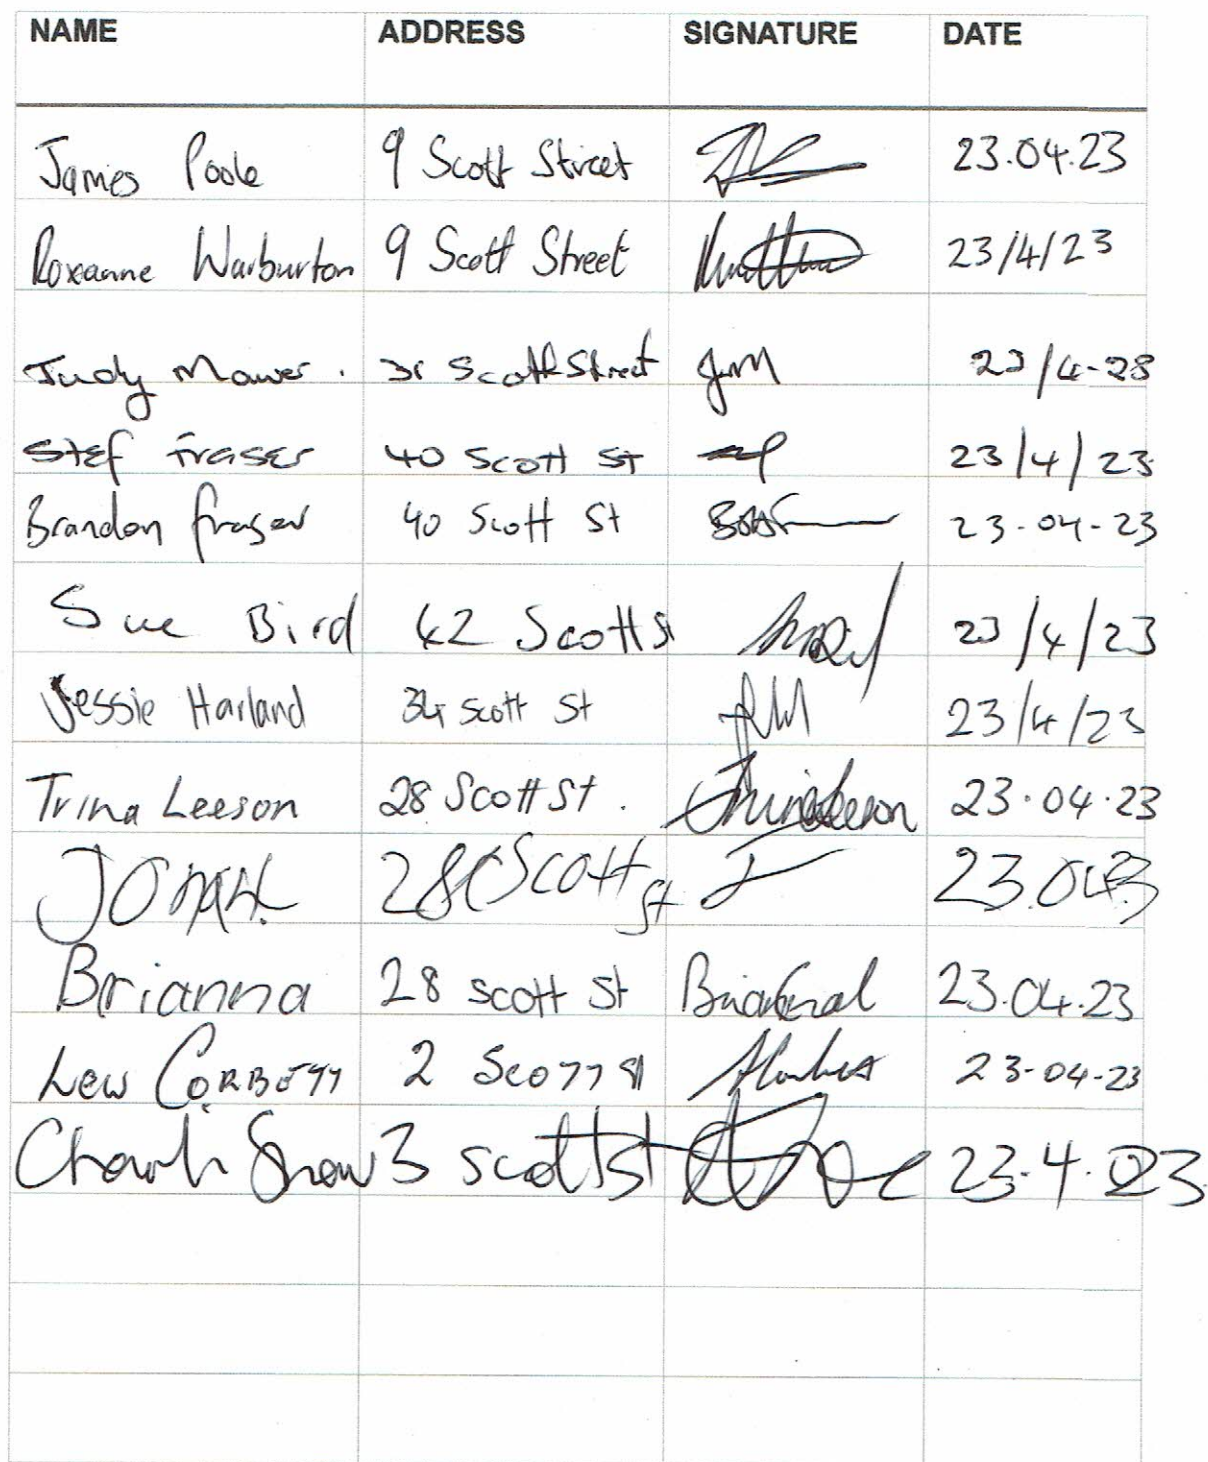 NAME ADDRESS SIGNATURE DATE
James Poole 9 Scott Street 23.04.23
Roxanne Warburton 9 Scott Street 23/4/23
Judy Mawer . 31 Scott Street JM 23/4-23
Stef Fraser 40 Scott St 23/4/23
Brandon Fraser 40 Scott St 23-04-23
Sue Bird 42 Scott St 23/4/23
Jessie Harland 34 Scott St 23/4/23
Trina Leeson 28 Scott St. Trina Leeson 23.04.23
JONAH 28 Scott St J 23.04.23
Brianna 28 scott St 23.04.23
Lew CORBETT 2 SCOTT St 23-04-23
Snow 3 scott st 23.4.23